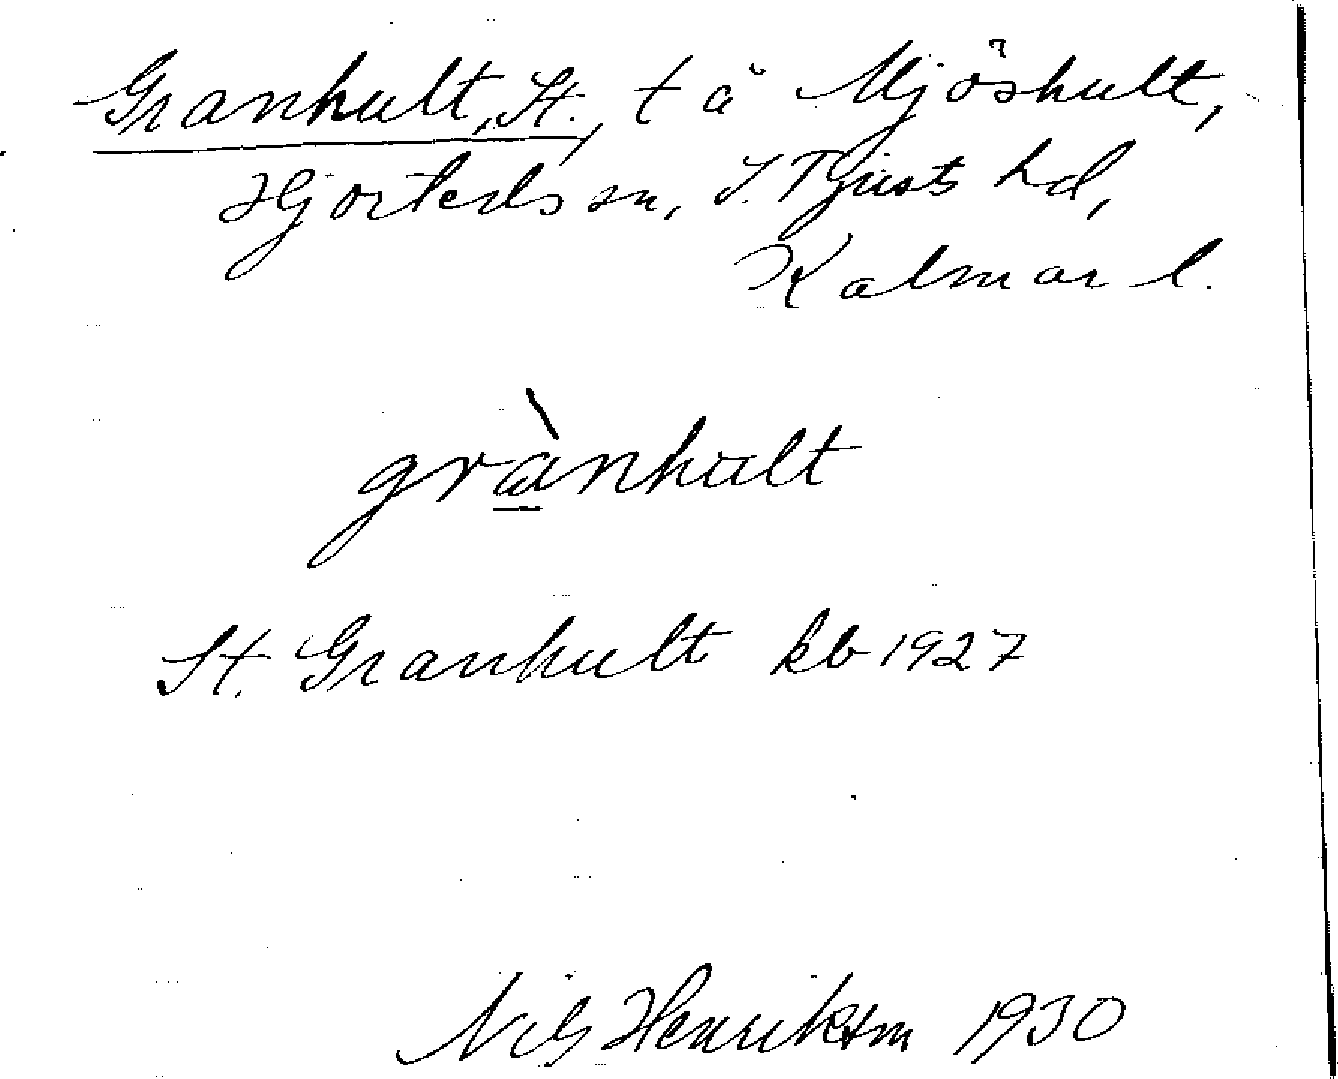 Granhult, St., t å Mjöshult,
Hjorteds sn, S. Tjusts hd,
Kalmar l.
grànhult
St. Granhult kb 1927
Nils Henrikson 1930